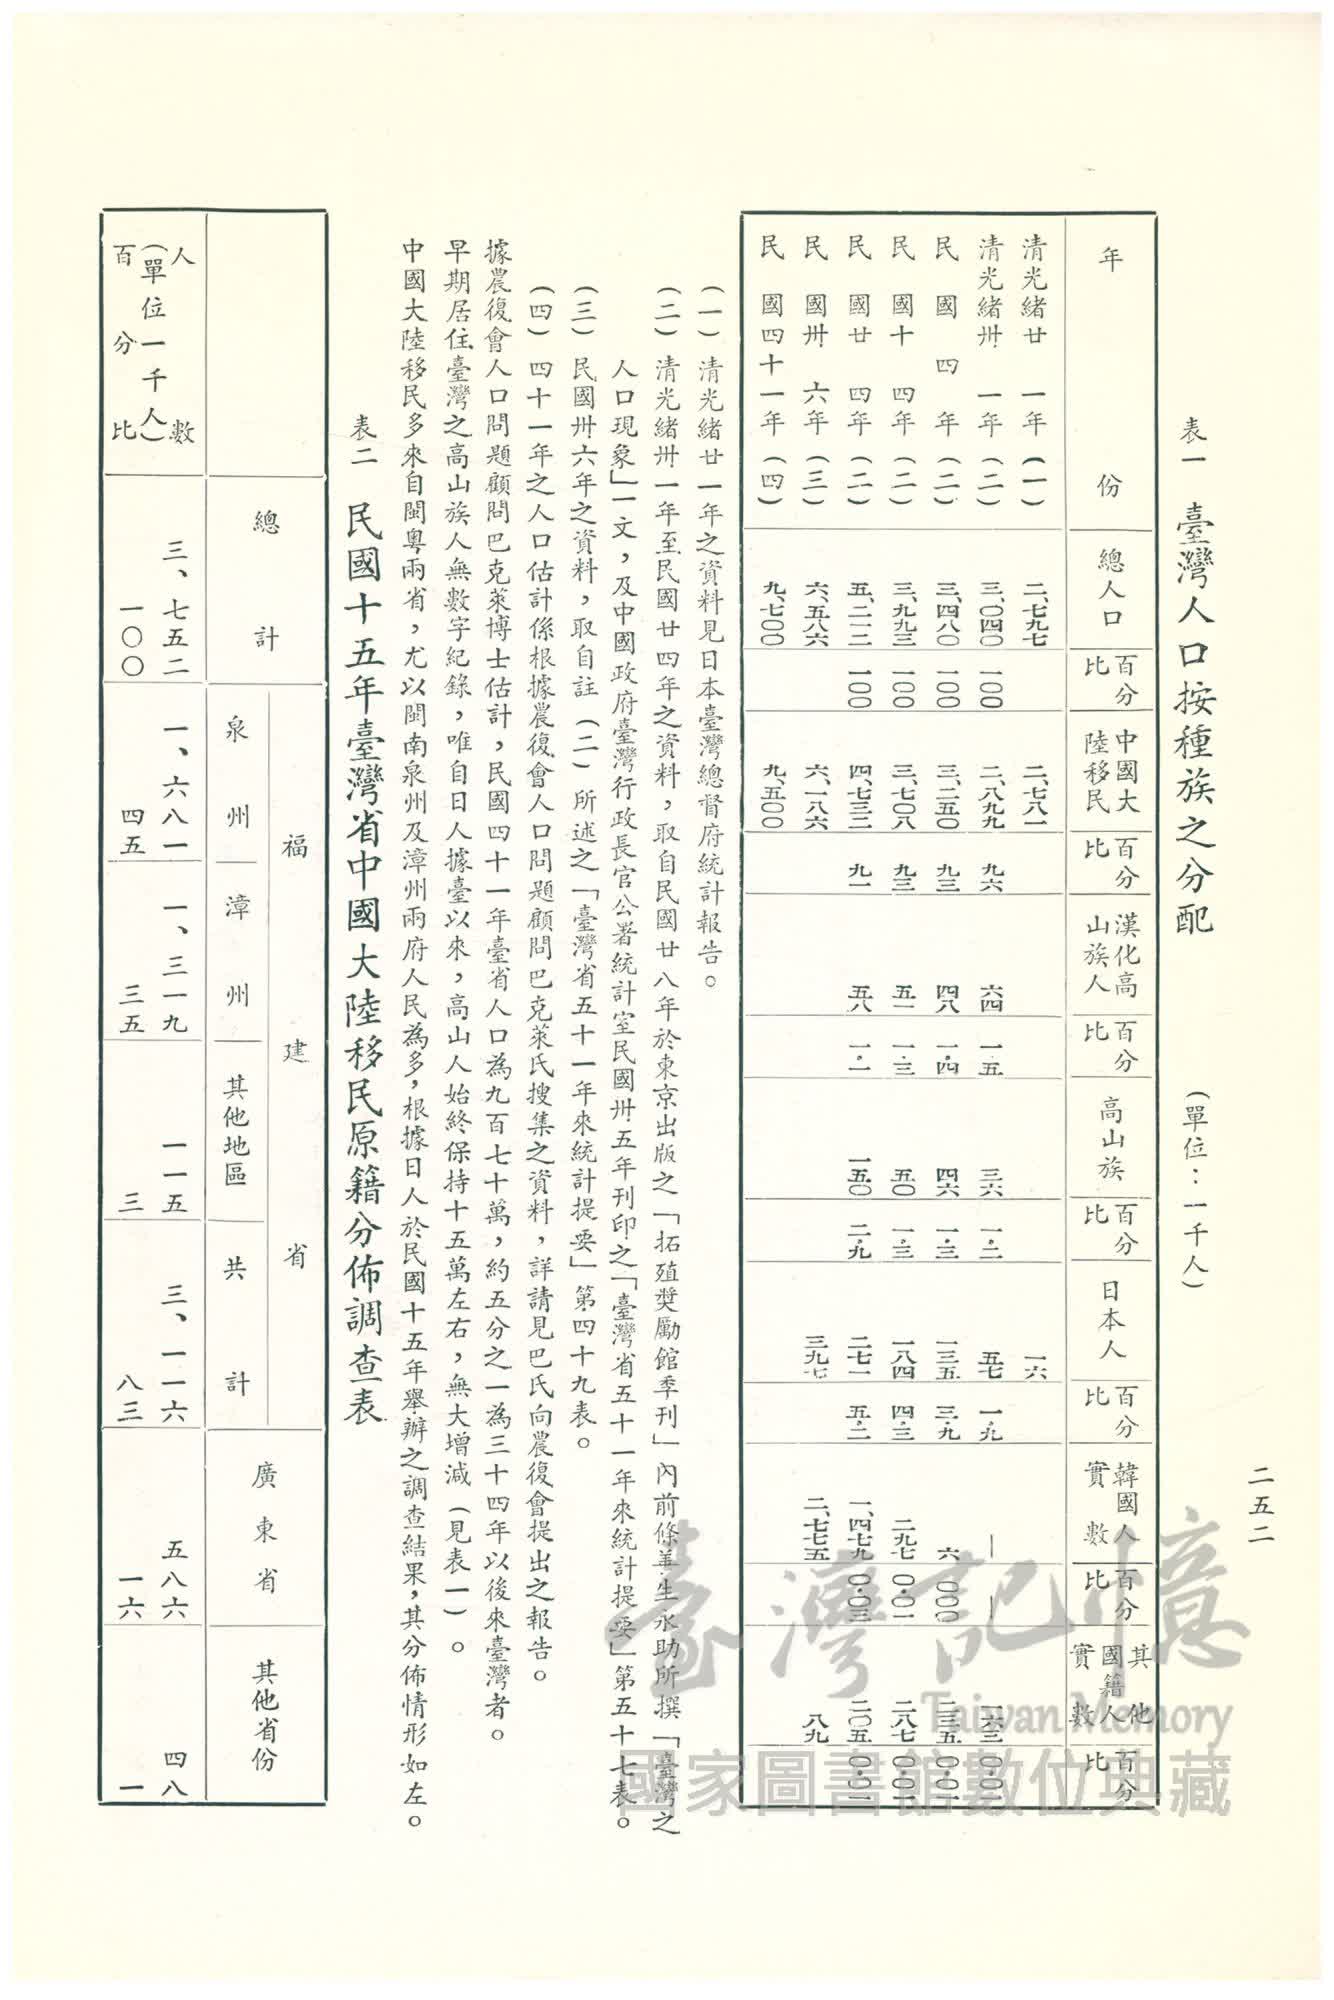 二五二
表一 臺灣人口按種族之分配 (單位：一千人)
年份 總人口 百分比 中國大陸移民 百分比 漢化高山族人 百分比 高山族 百分比 日本人 百分比 韓國人實數 百分比 其他國籍人實數 百分比
清光緒廿一年(一) 二、七九七 二、七八一 一六
清光緒卅一年(二) 三、〇四〇 一〇〇 二、八九九 九六 六四 一·五 三六 一·二 五七 一·九 — —
民國四年(二) 三、四八〇 一〇〇 三、二五〇 九三 四八 一·四 四六 一·三 一三五 三·九 六
民國十四年(二) 三、九九三 一〇〇 三、七〇八 九三 五一 一·三 五〇 一·三 一八四 四·三 二九七
民國廿四年(二) 五、二一二 一〇〇 四、七三二 九一 五八 一·一 一五〇 二·九 二七一 五·二 一、四七九
民國卅六年(三) 六、五八六 六、一八六 三九七 二、七七五 八九
民國四十一年(四) 九、七〇〇 九、五〇〇
(一) 清光緒廿一年之資料見日本臺灣總督府統計報告。
(二) 清光緒卅一年至民國廿四年之資料，取自民國廿八年於東京出版之「拓殖奬勵館季刊」內前條善生永助所撰「臺灣之
人口現象」一文，及中國政府臺灣行政長官公署統計室民國卅五年刊印之「臺灣省五十一年來統計提要」第五十七表。
(三) 民國卅六年之資料，取自註(二)所述之「臺灣省五十一年來統計提要」第四十九表。
(四) 四十一年之人口估計係根據農復會人口問題顧問巴克萊氏搜集之資料，詳請見巴氏向農復會提出之報告。
據農復會人口問題顧問巴克萊博士估計，民國四十一年臺省人口為九百七十萬，約五分之一為三十四年以後來臺灣者。
早期居住臺灣之高山族人無數字紀錄，唯自日人據臺以來，高山人始終保持十五萬左右，無大增減(見表一)。
中國大陸移民多來自閩粵兩省，尤以閩南泉州及漳州兩府人民為多，根據日人於民國十五年舉辦之調查結果，其分佈情形如左。
表二 民國十五年臺灣省中國大陸移民原籍分佈調查表
總計 福建省 廣東省 其他省份
泉州 漳州 其他地區 共計
人數(單位一千人) 三、七五二 一、六八一 一、三一九 一一五 三、一一六 五八六 四八
百分比 一〇〇 四五 三五 三 八三 一六 一
臺灣記憶
Taiwan Memory
國家圖書館數位典藏